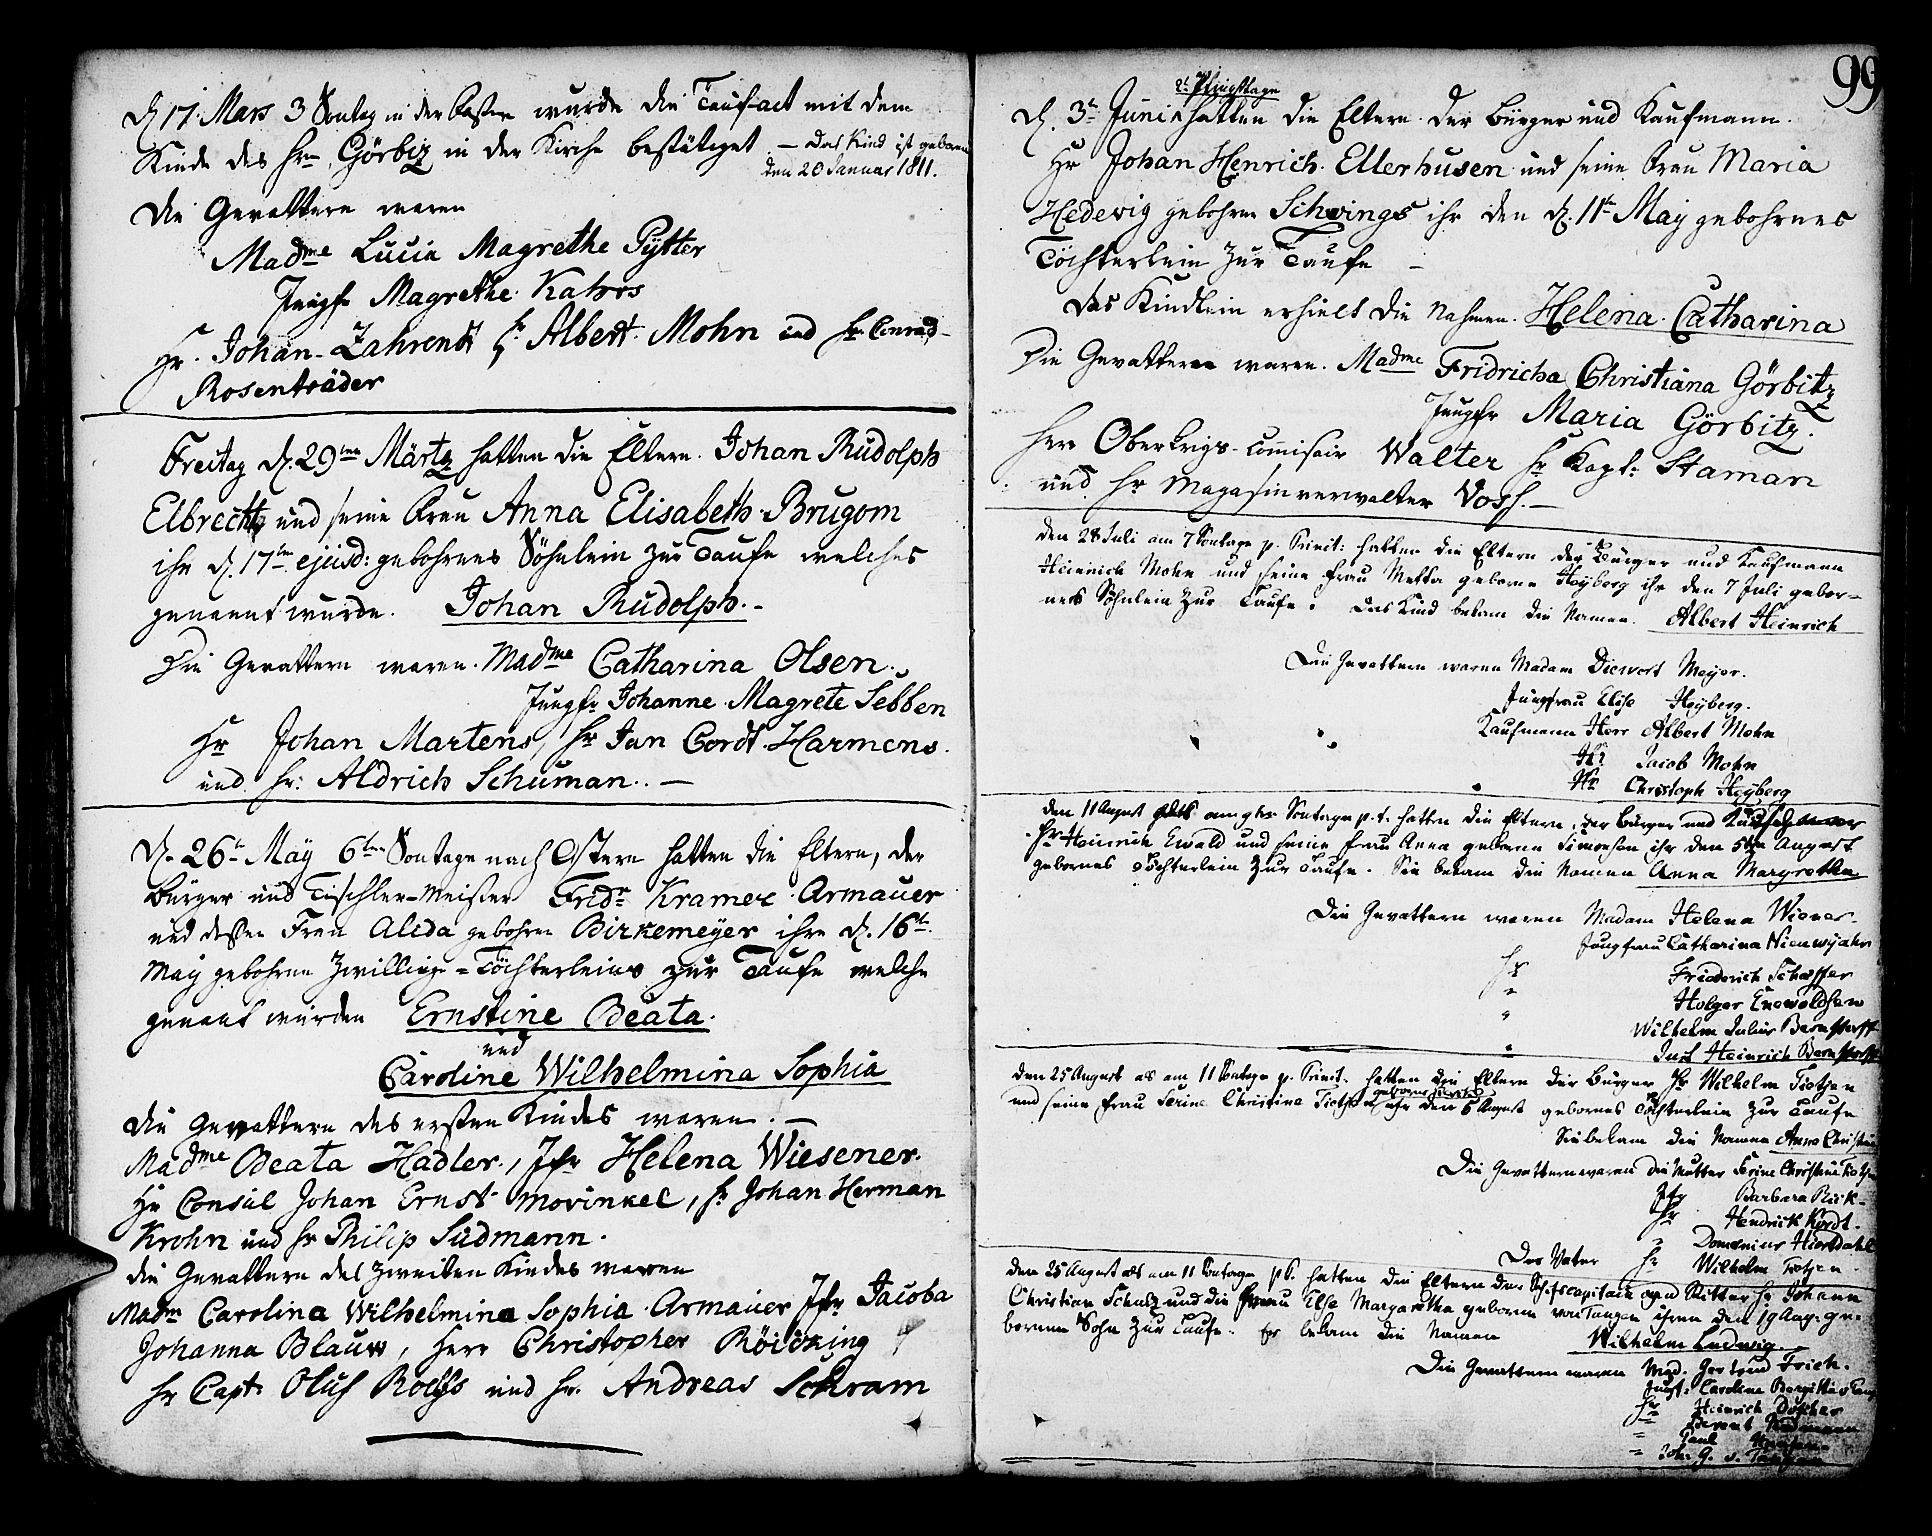 d. 17. Mars 3 Sontag in der Fasten wurde die Taufact mit dem
Kinde des Hrn Görbiz in der Kirche bestätiget – das Kind ist geboren
den 20 Januar 1811.
Die Gevattern waren
Madme Lucia Magrethe Pytter
Jungfr Magrethe
Hr. Johan Zahrendt Hr Albert Mohn und Hr Conrad
Rosenträder
Freitag d. 29ten Märtz hatten die Eltern Johan Rudolph
Elbrecht und seine Frau Anna Elisabeth Brugom
ihr d. 17ten ejusd: gebohrnes Söhnlein zur Taufe welches
genennt wurde. Johan Rudolph.
Die Gevattern waren. Madme Catharina Olsen.
Jungfr Johanne Magrete Sebben
Hr Johan Martens, Hr Jan Cordt Harmens.
und Hr: Aldrich Schuman. –
D. 26t May 6ten Sontage nach Ostern hatten die Eltern, der
Bürger und Tischler-Meister Fridr Kramer Armauer
und dessen Frau Alida gebohrn Birkemeyer ihre d. 16t
May gebohrne Zwillings-Töchterleins zur Taufe welche
genant wurden Ernstine Beata.
und
Caroline Wilhelmina Sophia
Die Gevattern des ersten Kindes waren. –
Madme Beata Hadler., Jfr Helena Wiesener.
Hr Consul Johan Ernst Mowinkel, Hr Johan Herman
Krohn und Hr Philip Südmann.
die Gevattern des zweiten Kindes waren
Madm Carolina Wilhelmina Sophia Armauer Jfr Jacoba
Johanna Blauw, Herr Christopher
Hr Capt. Oluf und Hr. Andreas Schram
99
2t Pfingsttage
D. 3t Juni hatten die Eltern der Bürger und Kaufmann.
Hr Johan Henrich Ellerhusen und seine Frau Maria
Hedevig gebohrne Schwings ihr den d. 11t May gebohrnes
Töchterlein zur Taufe –
Das Kindlein erhielt die Nahmen. Helena Catharina
Die Gevattern waren. Madme Fridricha Christiana Görbitz
Jungfr Maria Görbitz.
Herr Oberkrigs-Comisair Walter Hr Kapt: Staman
und Hr Magasinverwalter Voss. –
Den 28 Juli am 7 Sontage p. Trinit: hatten die Eltern der Bürger und Kaufmann
Heinrich Mohn und seine Frau Metta geborne Heyberg ihr den 7 Juli gebor-
nes Söhnlein zur Taufe. Das Kind bekam die Namen. Albert Heinrich
Die Gevattern waren Madam Diewert Meyer.
Jungfrau Elise Heyberg.
Kaufmann Herr Albert Mohn
Hr Jacob Mohn
Hr Christoph Heyberg
Den 11 August am 9ten Sontage p. t. hatten die Eltern, der Bürger und
Hr Heinrich Ewald und seine Frau Anna geborne Simonsen ihr den 5ten August
gebornes Töchterlein zur Taufe. Sie bekam die Namen Anna Margretha
Die Gevattern waren Madam Helena Wiener.
Jungfrau Catharina Nieuwejahr
Hr Friederich Schæffer
" Holger Enewoldsen
" Wilhelm Julius Bernstorff
" Just Heinrich Bernstorff
Den 25 August als am 11 Sontage p. Trinit. hatten die Eltern der Bürger Hr Wilhelm Tietjen
und seine Frau Serine Christine Tietjen ihr den 6 August gebornes Töchterlein zur Taufe
Sie bekam die Namen Anna Christine
Die Gevattern waren die Mutter Serine Christine Tietjen
Jfr Barbara Rick-
Hr Hendrick Kordt.
" Domenius Hiortdahl
Der Vater Hr Wilhelm Tietjen.
Den 25 August als am 11 Sontage p.t. hatten die Eltern der Schifscapitain und Ritter Hr Johann
Christian Schulz und die Frau Else Margaretha geborne von Tangen ihren den 19 Aug: ge-
bornen Sohn zur Taufe. Er bekam die Namen Wilhelm Ludwig.
Die Gevattern waren Mad. Gertrud Frich.
Jungf: Caroline
Hr Heinrich
" Berent
" Paul
" Joh: G. v. Tangen